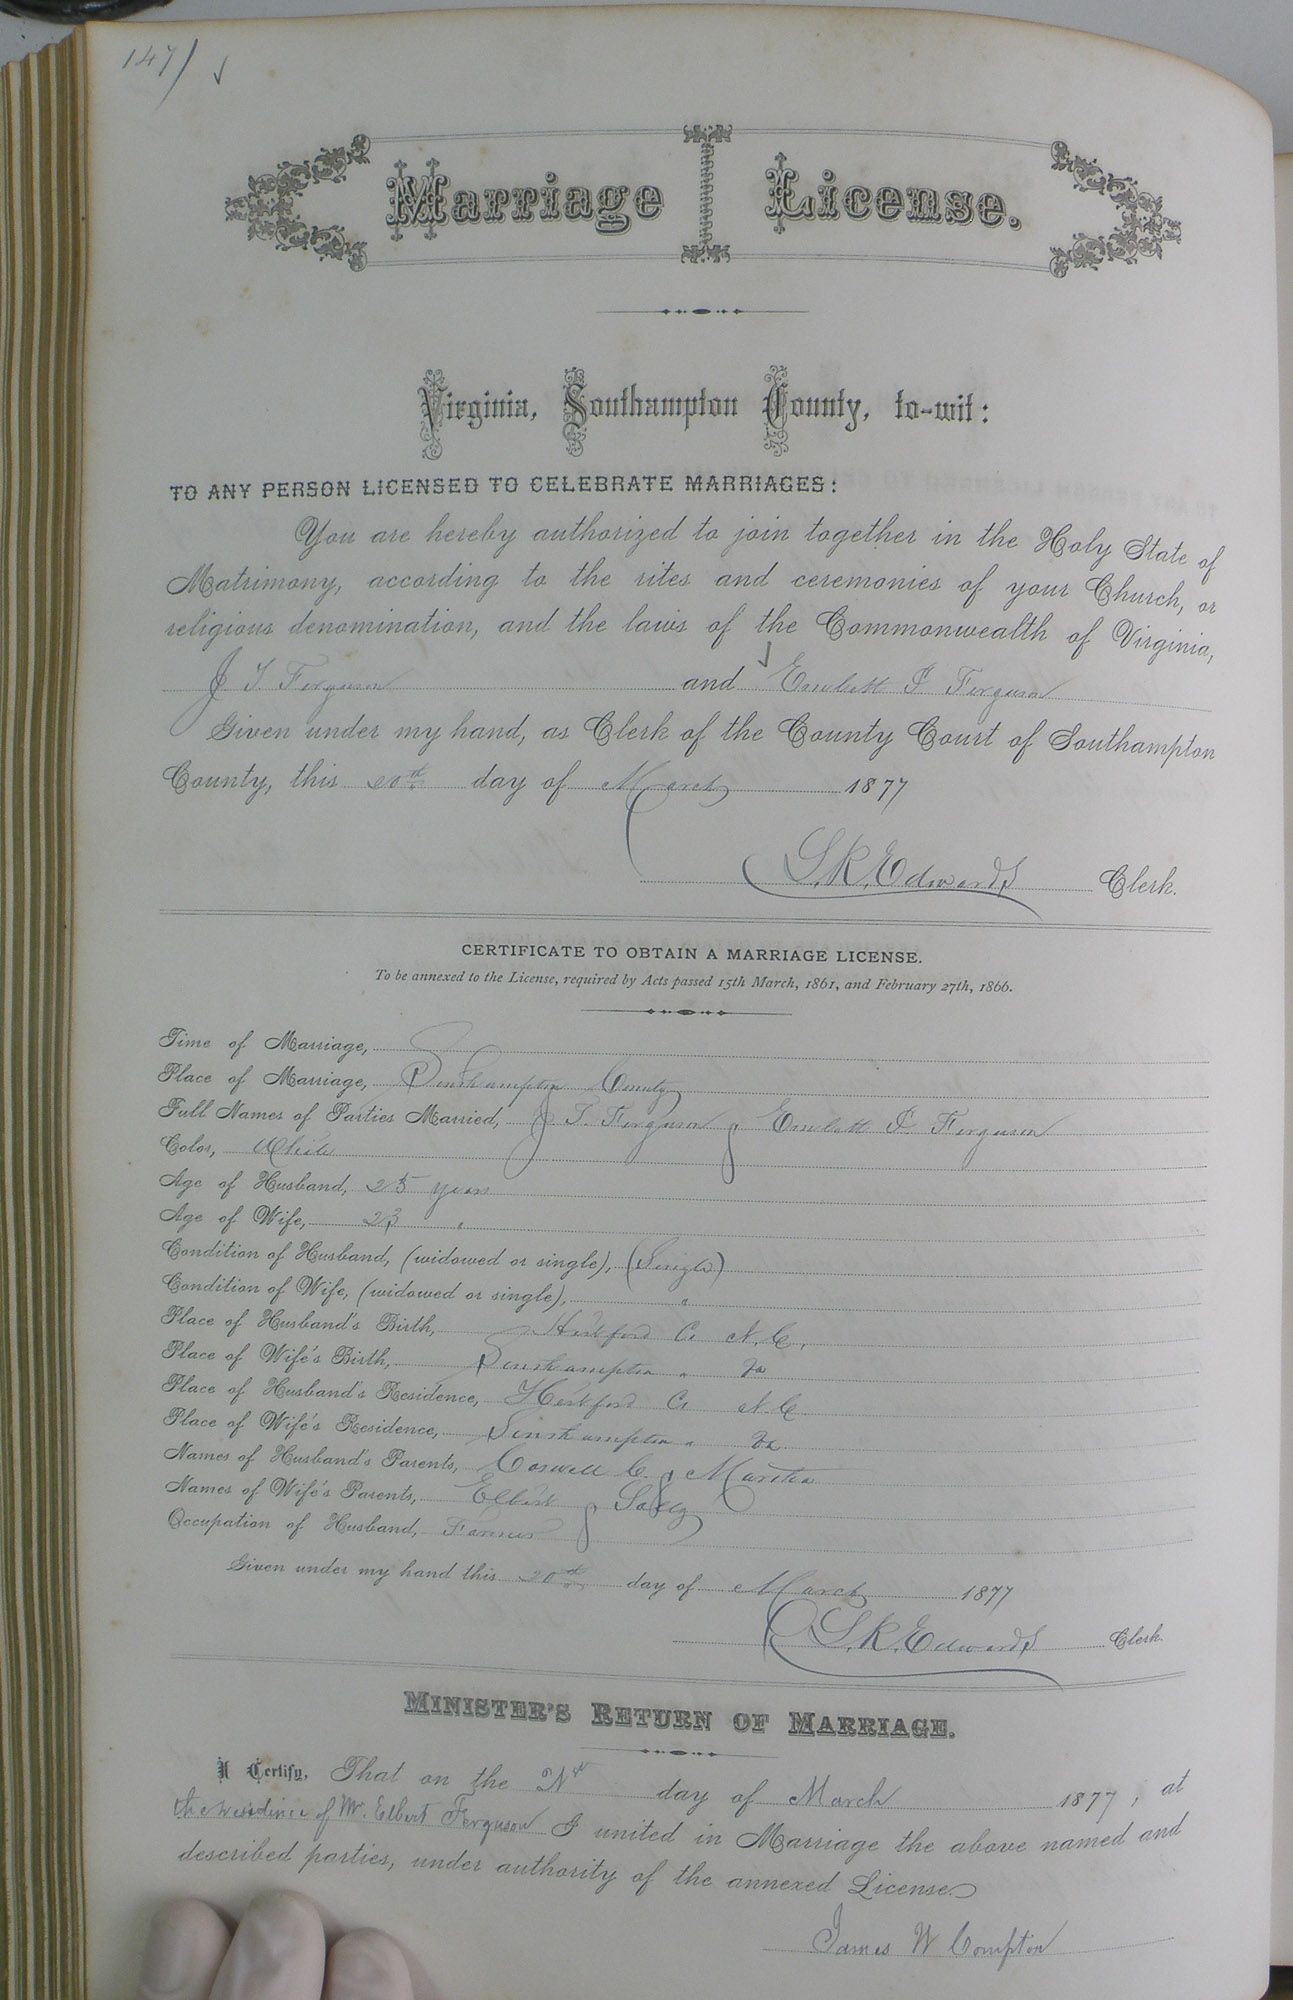 147/ ✓
Marriage License.
Virginia, Southampton County, to-wit:
TO ANY PERSON LICENSED TO CELEBRATE MARRIAGES:
You are hereby authorized to join together in the Holy State of
Matrimony, according to the rites and ceremonies of your Church, or
religious denomination, and the laws of the Commonwealth of Virginia,
J. T. Ferguson and Emebett F Ferguson
Given under my hand, as Clerk of the County Court of Southampton
County, this 20th day of March 1877
L. R. Edwards Clerk.
CERTIFICATE TO OBTAIN A MARRIAGE LICENSE.
To be annexed to the License, required by Acts passed 15th March, 1861, and February 27th, 1866.
Time of Marriage,
Place of Marriage, Southampton County
Full Names of Parties Married, J. T. Ferguson & Emebett F. Ferguson
Color, White
Age of Husband, 25 years
Age of Wife, 23 "
Condition of Husband, (widowed or single), (Single)
Condition of Wife, (widowed or single), "
Place of Husband's Birth, Hertford Co N.C.
Place of Wife's Birth, Southampton " Va
Place of Husband's Residence, Hertford Co N.C.
Place of Wife's Residence, Southampton " Va
Names of Husband's Parents, Caswell C. & Martha
Names of Wife's Parents, Elbert & Sally
Occupation of Husband, Farmer
Given under my hand this 20th day of March 1877
L. R. Edwards Clerk.
MINISTER'S RETURN OF MARRIAGE.
I Certify, That on the day of March 1877, at
the residence of Mr. Elbert Ferguson I united in Marriage the above named and
described parties, under authority of the annexed License.
James W Compton